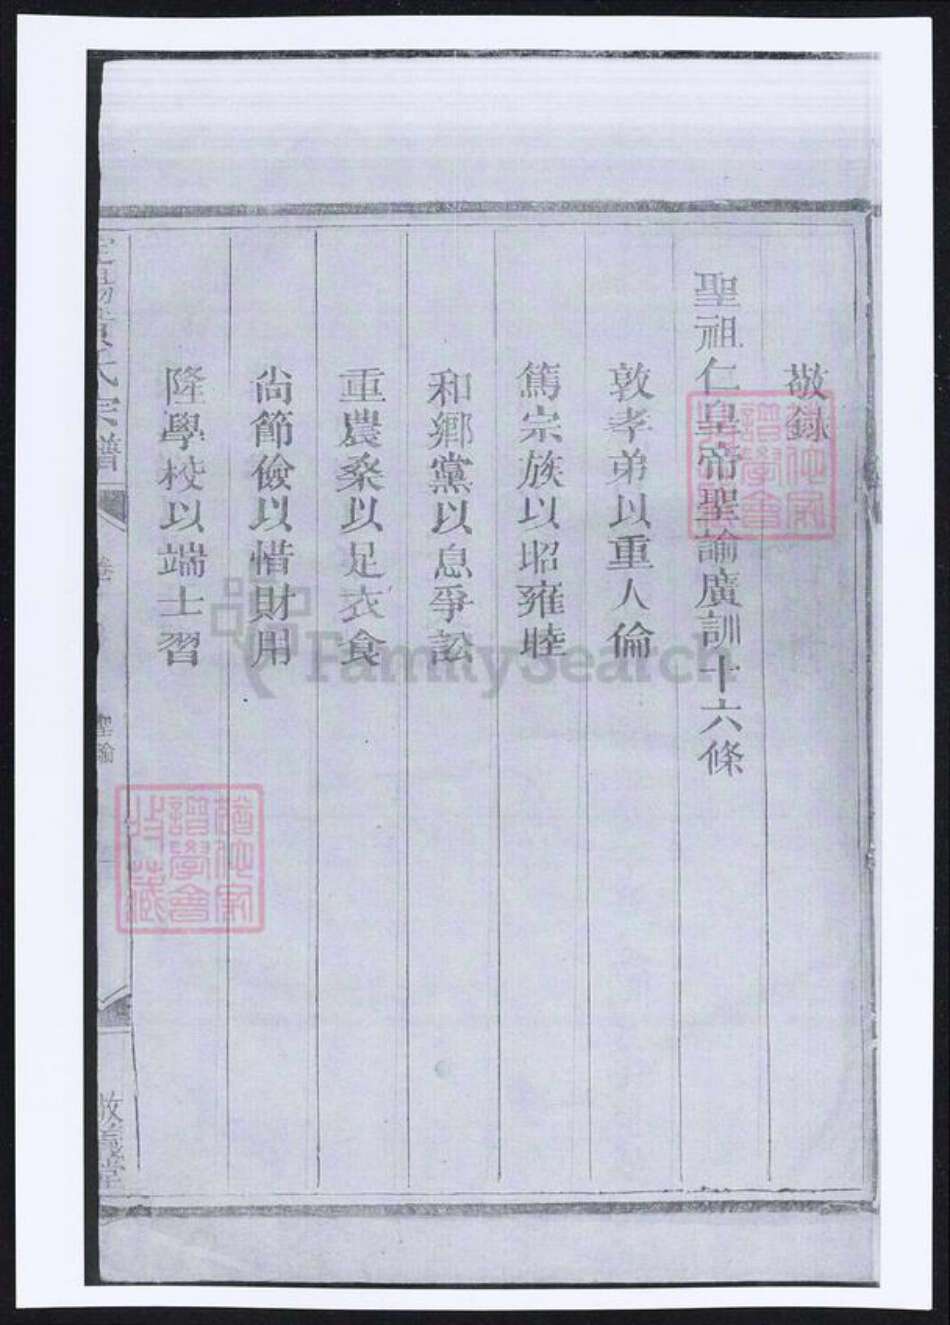 敬録
聖祖仁皇帝聖諭廣訓十六條
敦孝弟以重人倫
篤宗族以昭雍睦
和鄉黨以息爭訟
重農桑以足衣食
尚節儉以惜財用
隆學校以端士習
氏宗譜
卷
聖諭
義堂
譜學會
譜學會
收藏
FamilySearch